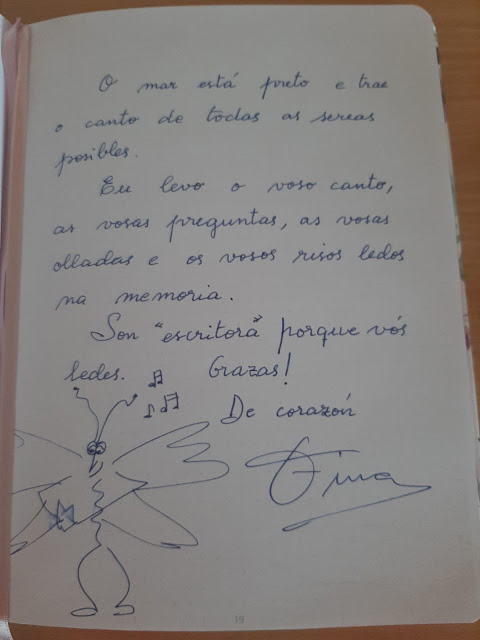 O mar está preto e trae
o canto de todas as sereas
posibles.
Eu levo o voso canto,
as vosas preguntas, as vosas
olladas e os vosos risos ledos
na memoria.
Son "escritora" porque vós
ledes. Grazas!
De corazón
Tina
19